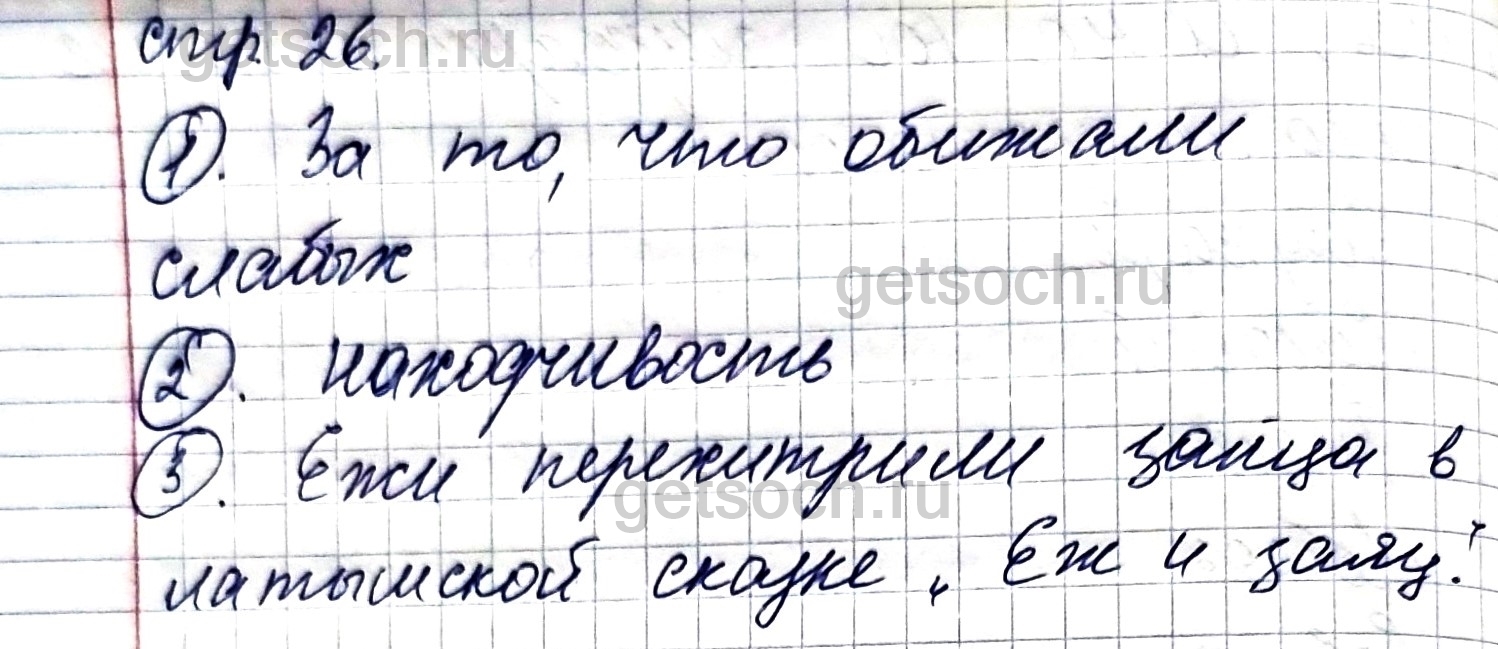 стр. 26.
getsoch.ru
1. За то, что обижали
слабых
getsoch.ru
2. Находчивость
3. Ежи перехитрили зайца в
getsoch.ru
латышской сказке „Еж и заяц".